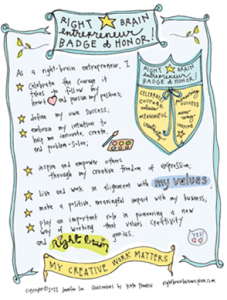 RIGHT BRAIN
entrepreneur
BADGE of HONOR!
As a right-brain entrepreneur, I
Celebrate the courage it
takes to follow my
heart and pursue my passions;
define my own success;
embrace my intuition to
help me innovate, create,
and problem-solve;
RIGHT BRAIN
entrepreneur
BADGE of HONOR!
CELEBRATING
COURAGE
SUCCESS
inspire and empower others
through my creative freedom of expression;
live and work in alignment with my values;
make a positive, meaningful impact with my business;
play an important role in pioneering a new
way of working that values creativity
and right brain genius.
YES!
MY CREATIVE WORK MATTERS